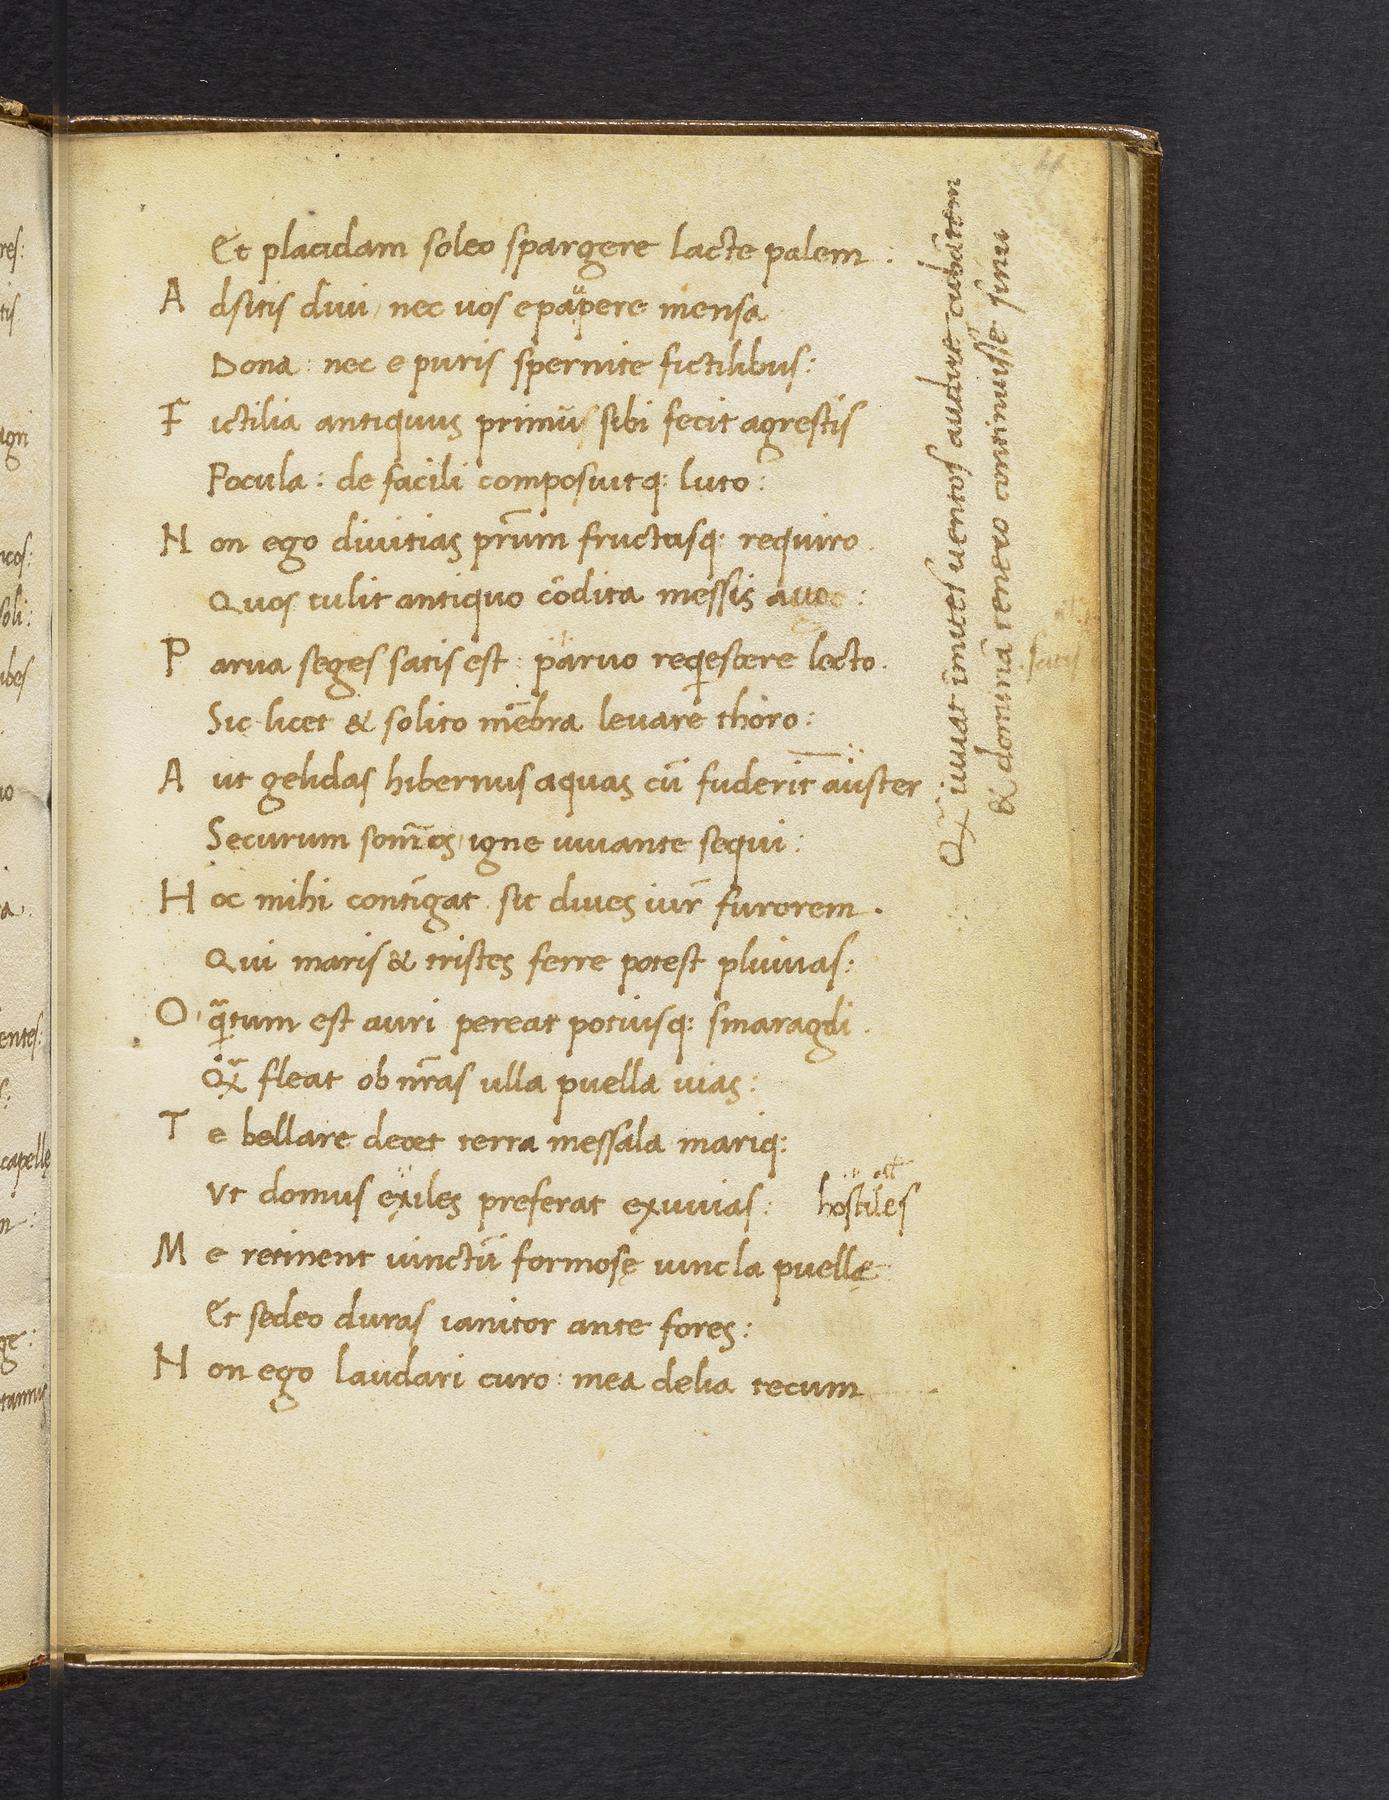 4
Et placidam soleo spargere lacte palem .
A dsitis diui / nec uos e paupere mensa
Dona : nec e puris spernite fictilibus :
F ictilia antiquus primũ sibi fecit agrestis
Pocula : de facili composuitq: luto :
N on ego diuitias pr̃um fructusq: requiro .
Quos tulit antiquo cõdita messis auo :
P arua seges satis est : paruo reqescere lecto .
Sic licet & solito mẽbra leuare thoro :
A ut gelidas hibernus aquas cũ fuderit auster
Securum somños / igne iuuante sequi :
H oc mihi contĩgat . sit diues iur̃ furorem .
Qui maris & tristes ferre potest pluuias :
O qãtum est auri pereat potiusq: smaragdi .
Q̃ fleat ob nr̃as ulla puella uias :
T e bellare decet terra messala mariq:
Vt domus exiles preferat exuuias : hostiles
M e retinent uinctũ formosę uincla puellę
Et sedeo duras ianitor ante fores :
N on ego laudari curo : mea delia tecum
Q̃ iuuat ĩmites uentos audire cubãtem
& dominã tenero continuisse sinu